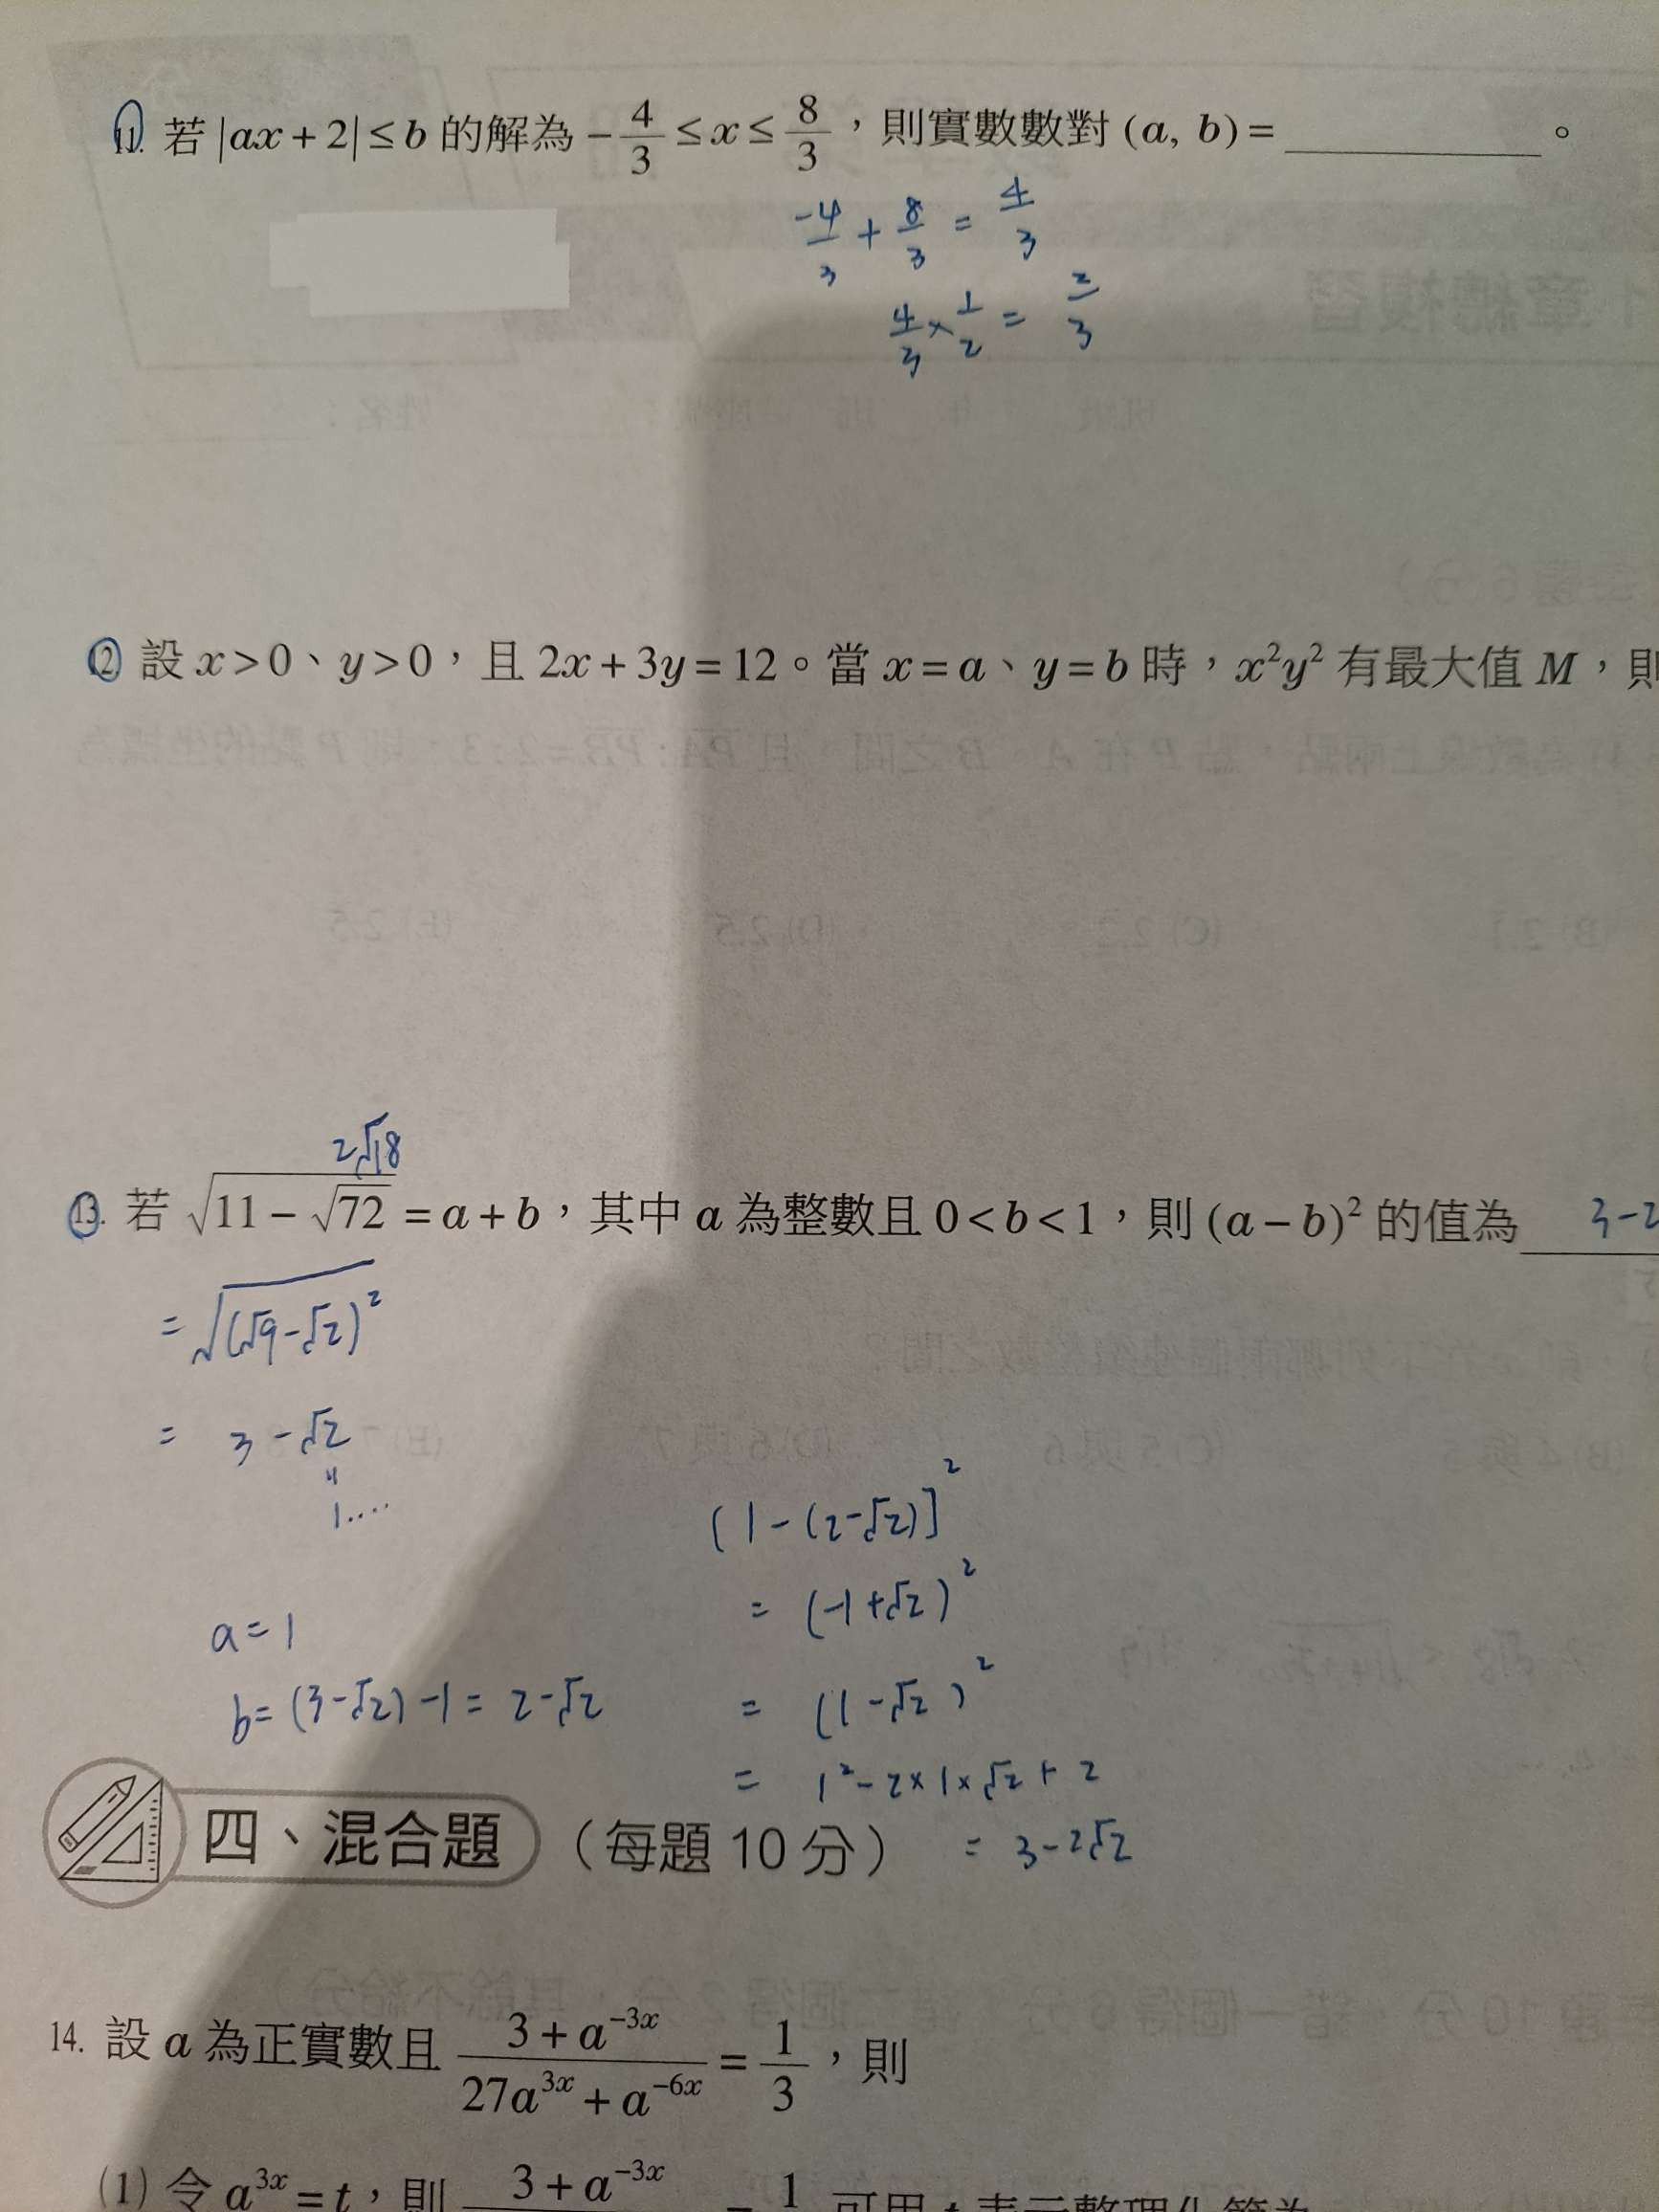 11. 若 |ax + 2| ≤ b 的解為 -4/3 ≤ x ≤ 8/3，則實數數對 (a, b) = ________。
-4/3 + 8/3 = 4/3
4/3 × 1/2 = 2/3
12 設 x > 0、y > 0，且 2x + 3y = 12。當 x = a、y = b 時，x²y² 有最大值 M，則
2√18
13. 若 √(11 - √72) = a + b，其中 a 為整數且 0 < b < 1，則 (a - b)² 的值為 3-2
= √((√9-√2)²)
= 3 - √2
"
1....
[1-(2-√2)]²
= (-1+√2)²
a=1
b=(3-√2)-1= 2-√2
= (1-√2)²
= 1²-2×1×√2+2
四、混合題（每題 10 分）
= 3-2√2
14. 設 a 為正實數且 (3 + a⁻³ˣ)/(27a³ˣ + a⁻⁶ˣ) = 1/3，則
(1) 令 a³ˣ = t，則 3 + a⁻³ˣ = 1 可用 t 表示整理化簡為